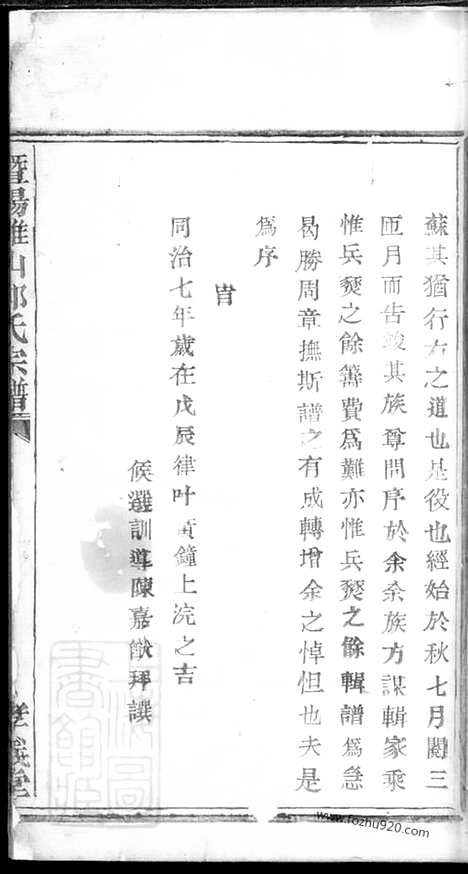 蘇其猶行古之道也是役也經始於秋七月閱三
匝月而告竣其族尊問序於余余族方謀輯家乘
惟兵燹之餘籌費爲難亦惟兵燹之餘輯譜爲急
曷勝周章撫斯譜之有成轉增余之悼怛也夫是
爲序
旹
同治七年歲在戊辰律叶黃鐘上浣之吉
候選訓導陳嘉猷拜譔
暨陽 山 氏宗譜
堂
www.fozhu920.com